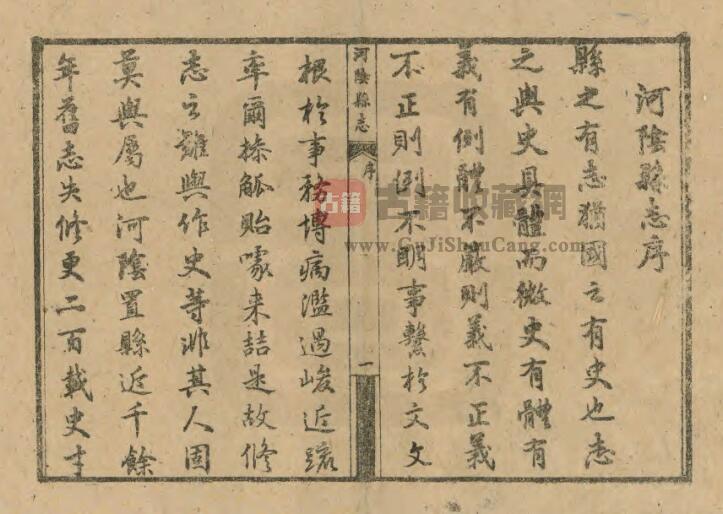 河陰縣志序
縣之有志猶國之有史也志
之與史具體而微史有體有
義有例體不嚴則義不正義
不正則例不明事繫於文文
河陰縣志
序
一
根於事務博病濫過峻近疏
率爾操觚貽嗤来詰是故修
志之難與作史等非其人固
莫與屬也河陰置縣近千餘
年舊志失修更二百載史才
古籍
古籍收藏網
www.GuJiShouCang.com